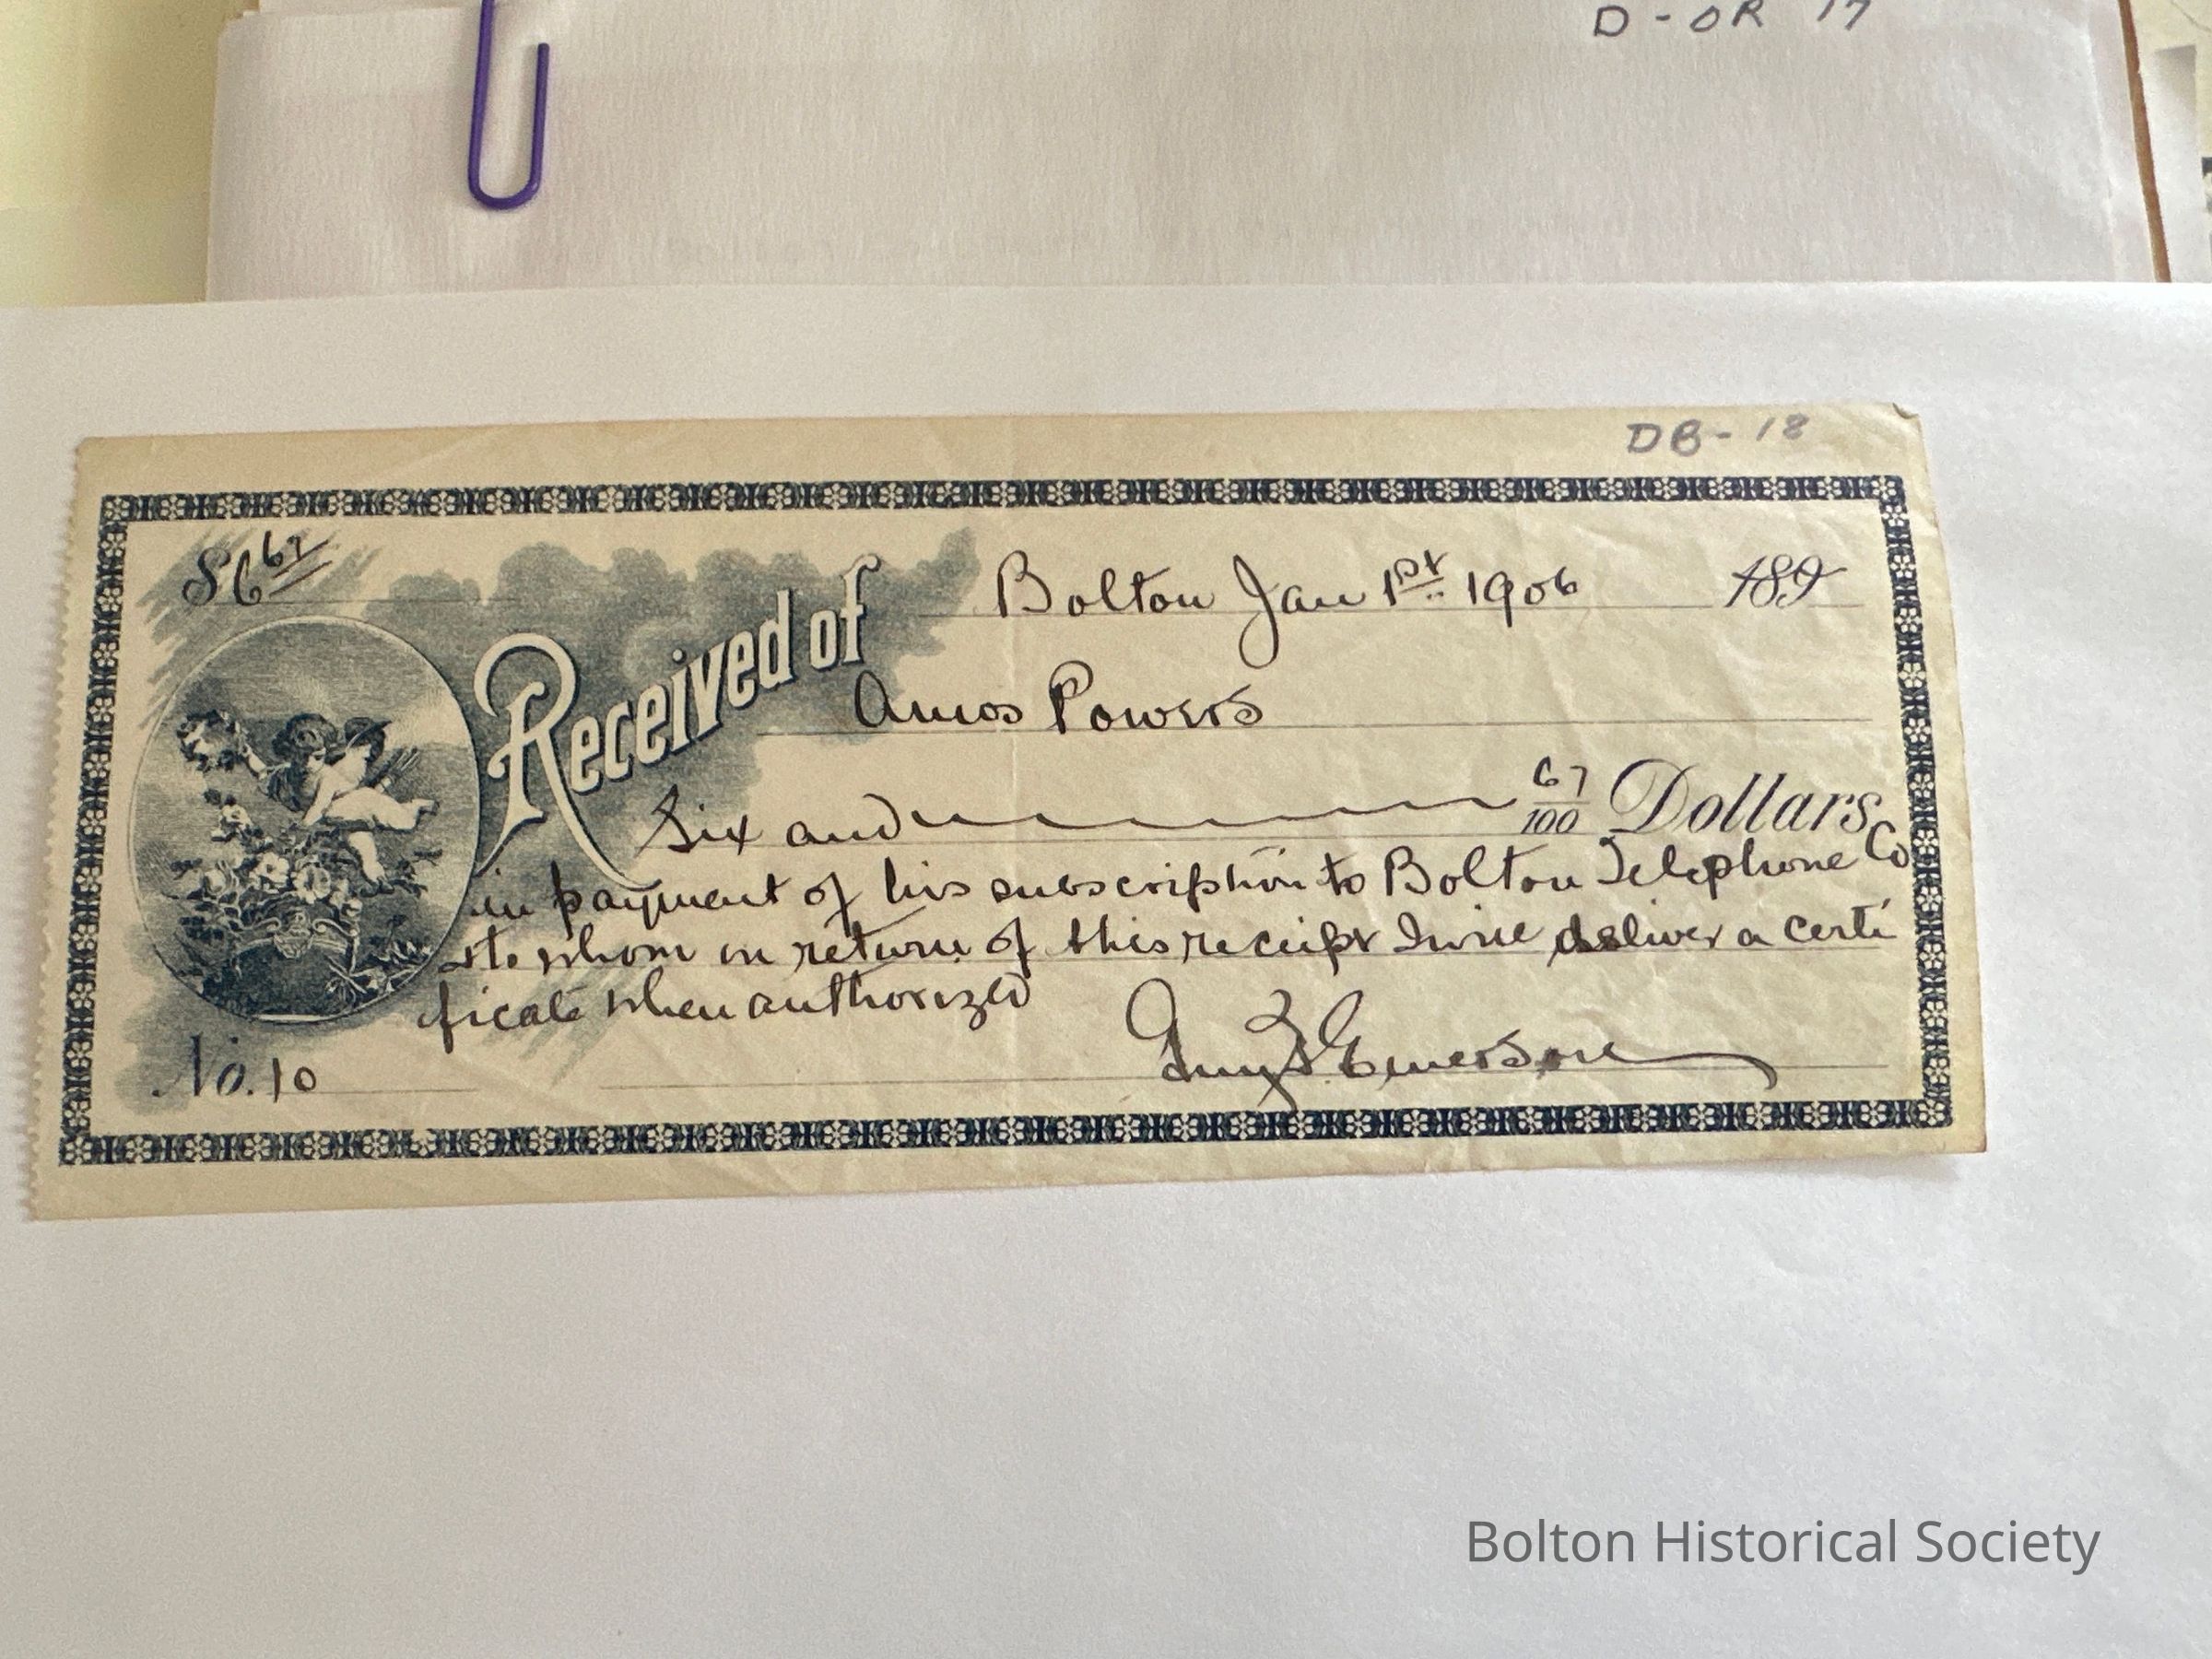 D-OR 17
DB-18
$6 67
Bolton Jan 1st 1906 189
Received of
Amos Powers
Six and 67/100 Dollars
in payment of his subscription to Bolton Telephone Co
to whom on return of this receipt I will deliver a certi
ficate when authorized
Emerson
No. 10
Bolton Historical Society